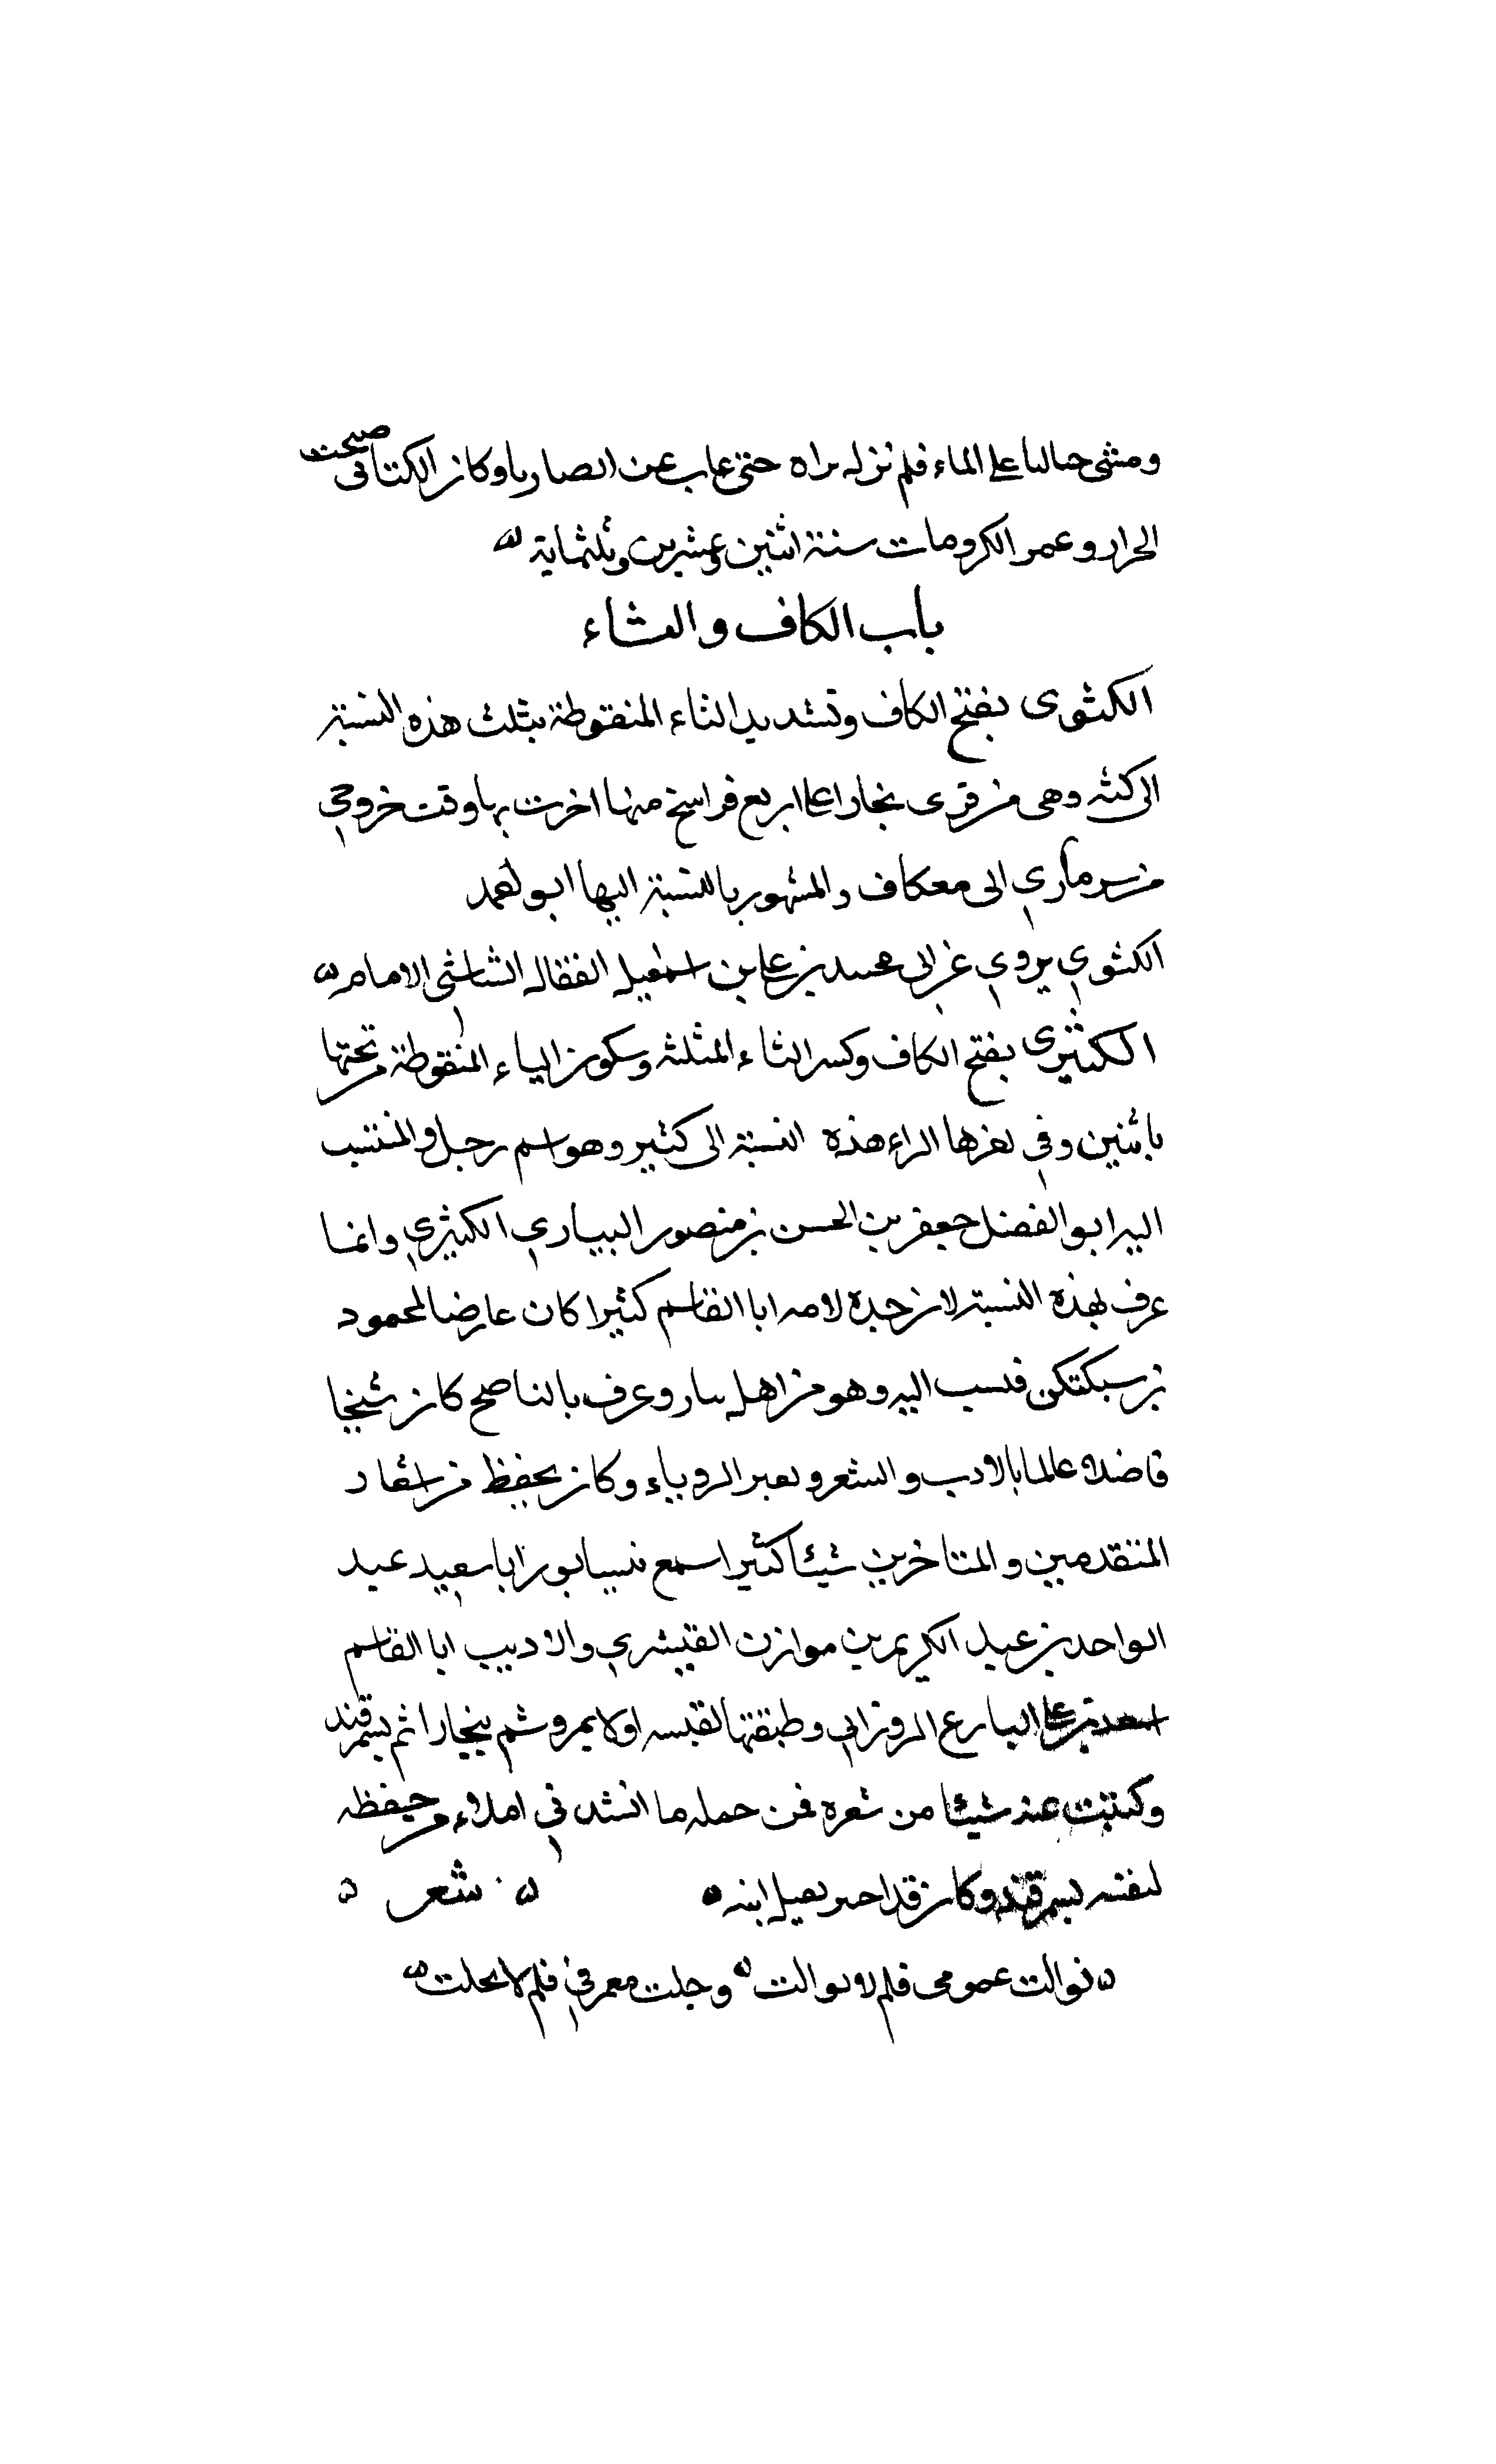 ومشى حيالنا على الماء فلم نزل نراه حتى غاب عن ابصارنا وكان الكتاني صحب
الخراز وعمر المكي ومات سنة اثنين وعشرين وثلثماية
باب الكاف والثاء
الكثوى بفتح الكاف وتشديد الثاء المنقوطة بثلث هذه النسبة
الى كثه وهى من قرى بخارا على اربع فراسخ منها اخرت بها وقت خروجي
من سرماري الى معكاف والمشهور بالنسبة اليها ابو احمد
الكثوي يروي عن ابي محمد بن علي بن اسمعيل القفال الشاشي الامام
الكثيرى بفتح الكاف وكسر الثاء المثلثه وسكون الياء المنقوطة من تحتها
باثنين وفي اخرها الراء هذه النسبة الى كثير وهو اسم رجل والمنتسب
اليه ابو الفضل جعفر بن الحسن بن منصور البياري الكثيري وانما
عرف بهذه النسبة لان جده لامه ابا القاسم كثيرا كان عارضا لمحمود
بن سبكتكين فنسب اليه وهو من اهل بيار وعرف بالناصح كان شيخا
فاضلا عالما بالادب والشعر وتعبر الروياء وكان يحفظ من اشعار
المتقدمين والمتاخرين شيئا كثيرا سمع نيسابور ابا سعيد عبد
الواحد بن عبد الكريم بن هوازن القشيري والاديب ابا القاسم
اسعد بن علي البارع الزوزني وطبقتها لقيته اولا بمرو ثم ببخارا ثم بسمرقند
وكتبت عنه شيئا من شعره فمن جمله ما انشدني املاء من حفظه
لنفسه بسمرقند وكان قد اخبر بقتل ابنه شعر
توالت غمومي فلم لا توالت وجلت معرفي فلم لا تجلت